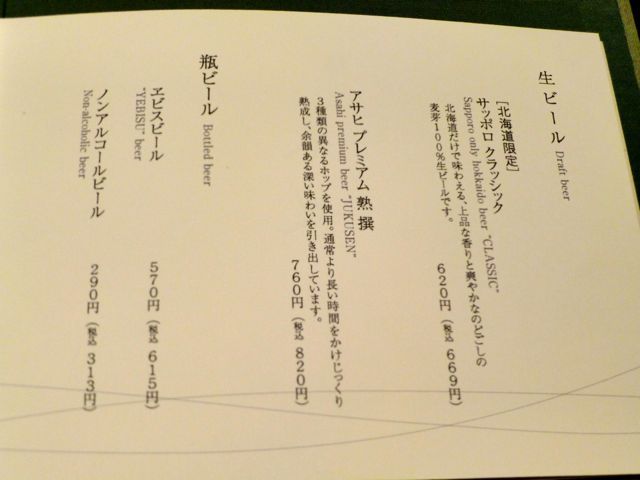 生ビール Draft beer
[北海道限定]
サッポロ クラッシック
Sapporo only hokkaido beer "CLASSIC"
北海道だけで味わえる、上品な香りと爽やかなのどごしの
麦芽100%生ビールです。
620円(税込 669円)
アサヒ プレミアム 熟撰
Asahi premium beer "JUKUSEN"
3種類の異なるホップを使用。通常より長い時間をかけじっくり
熟成し、余韻ある深い味わいを引き出しています。
760円(税込 820円)
瓶ビール Bottled beer
ヱビスビール
"YEBISU" beer
570円(税込 615円)
ノンアルコールビール
Non-alcoholic beer
290円(税込 313円)